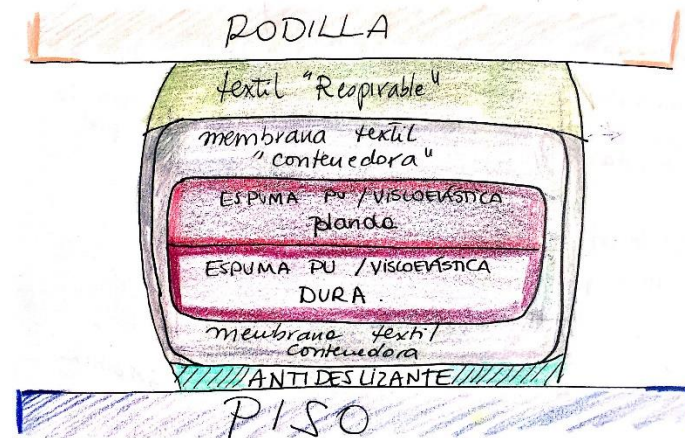 RODILLA
textil "Respirable"
membrana textil
"contenedora"
ESPUMA PU / VISCOELÁSTICA
blanda
ESPUMA PU / VISCOELÁSTICA
DURA.
membrana textil
contenedora
ANTIDESLIZANTE
PISO